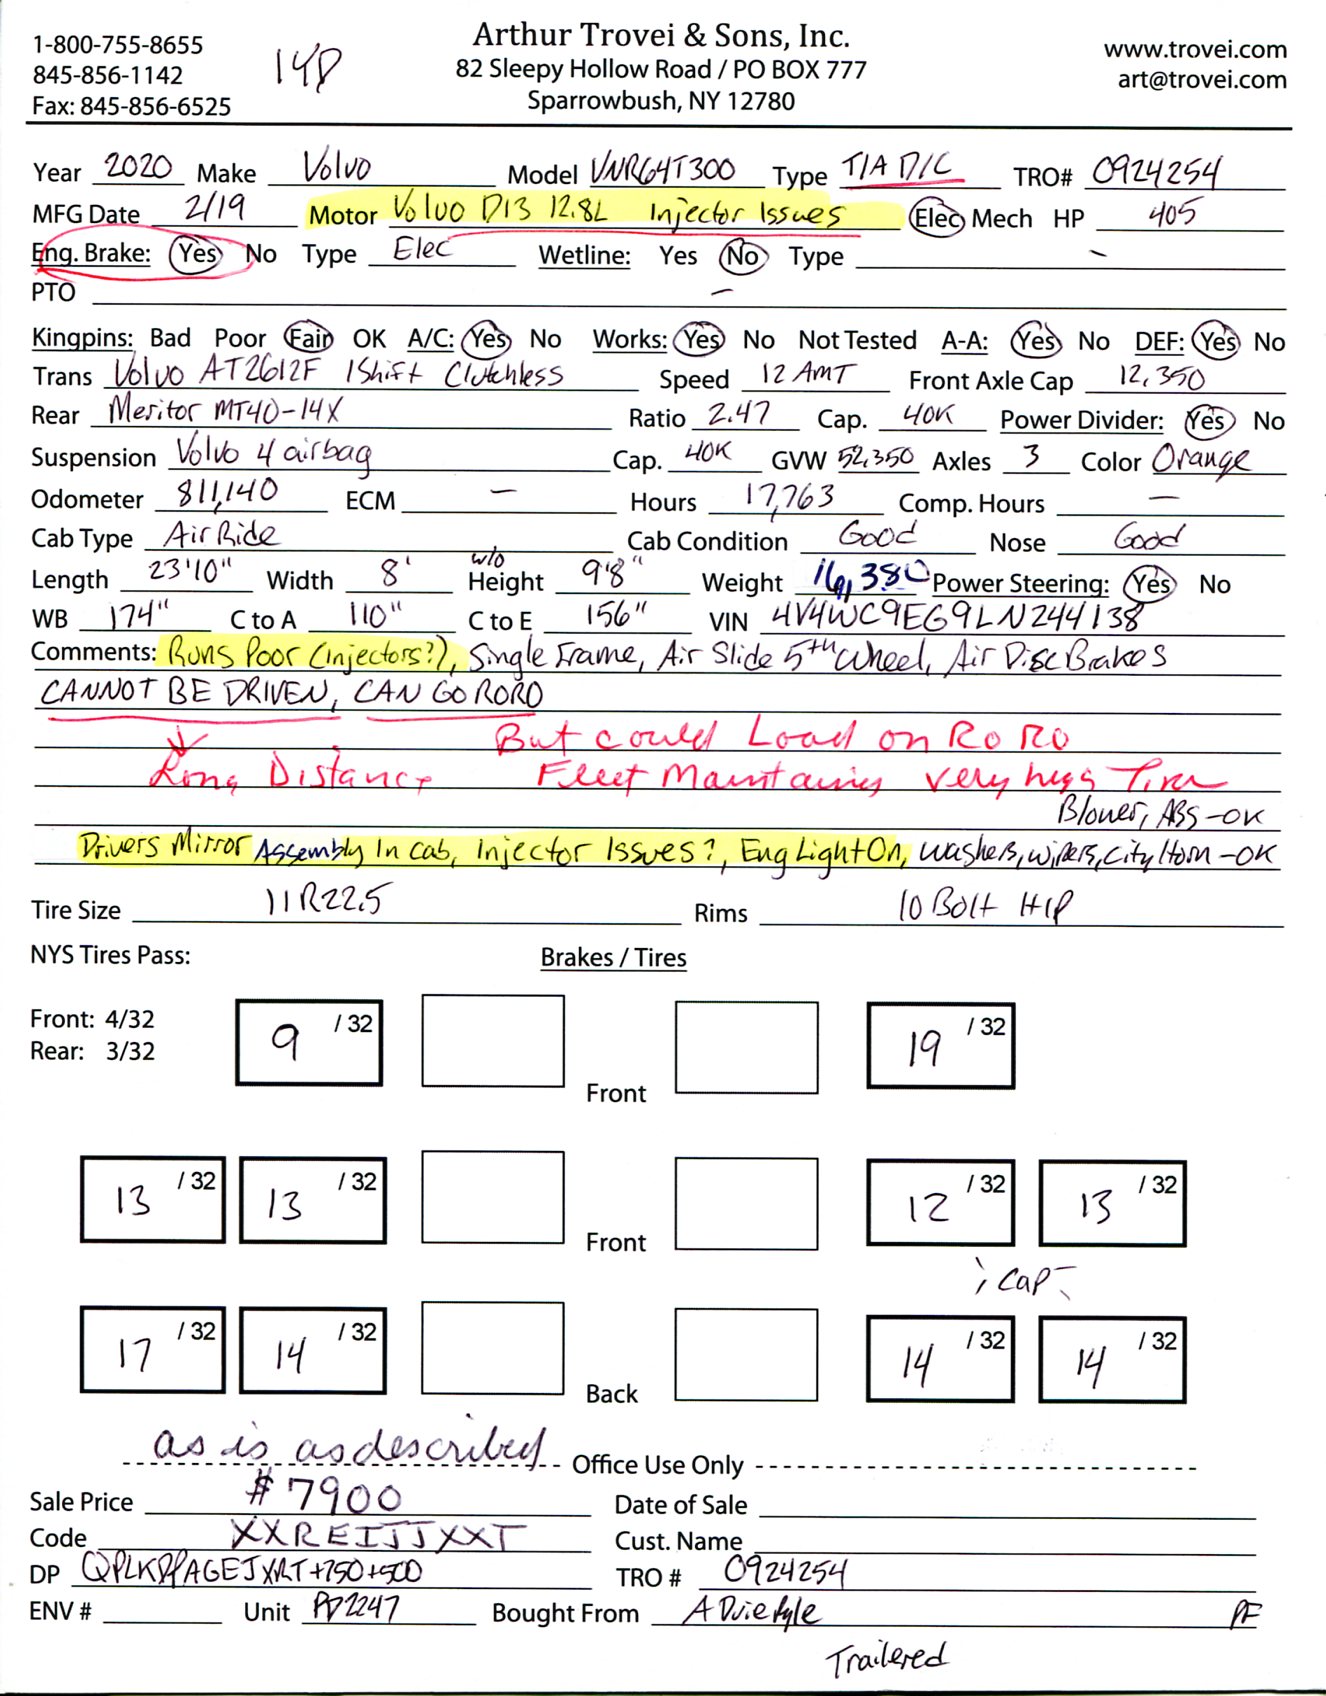 Arthur Trovei & Sons, Inc.
1-800-755-8655 82 Sleepy Hollow Road / PO BOX 777 www.trovei.com
845-856-1142 14P Sparrowbush, NY 12780 art@trovei.com
Fax: 845-856-6525
Year 2020 Make Volvo Model VNR64T300 Type T/A D/C TRO# 0924254
MFG Date 2/19 Motor Volvo D13 12.8L Injector Issues Elec Mech HP 405
Eng. Brake: Yes No Type Elec Wetline: Yes No Type -
PTO -
Kingpins: Bad Poor Fair OK A/C: Yes No Works: Yes No Not Tested A-A: Yes No DEF: Yes No
Trans Volvo AT2612F IShift Clutchless Speed 12 AMT Front Axle Cap 12,350
Rear Meritor MT40-14X Ratio 2.47 Cap. 40K Power Divider: Yes No
Suspension Volvo 4 airbag Cap. 40K GVW 52,350 Axles 3 Color Orange
Odometer 811,140 ECM - Hours 17,763 Comp. Hours -
Cab Type Air Ride Cab Condition Good Nose Good
Length 23'10" Width 8' w/o Height 9'8" Weight 16,380 Power Steering: Yes No
WB 174" C to A 110" C to E 156" VIN 4V4WC9EG9LN244138
Comments: Runs Poor (Injectors?), Single Frame, Air Slide 5th Wheel, Air Disc Brakes
CANNOT BE DRIVEN, CAN GO RORO
But could Load on RoRo
Long Distance Fleet Maintaining very high
Blower, ABS-OK
Drivers Mirror Assembly In cab, Injector Issues?, Eng Light On, Washers, Wipers, City Horn-OK
Tire Size 11R22.5 Rims 10 Bolt HP
NYS Tires Pass: Brakes / Tires
Front: 4/32
Rear: 3/32
9 /32 19 /32
Front
13 /32 13 /32 12 /32 13 /32
Front
Cap
17 /32 14 /32 14 /32 14 /32
Back
as is as described Office Use Only
Sale Price $7900 Date of Sale
Code XXREIJJXXT Cust. Name
DP +750+500 TRO # 0924254
ENV # Unit PD2247 Bought From PF
Trailered